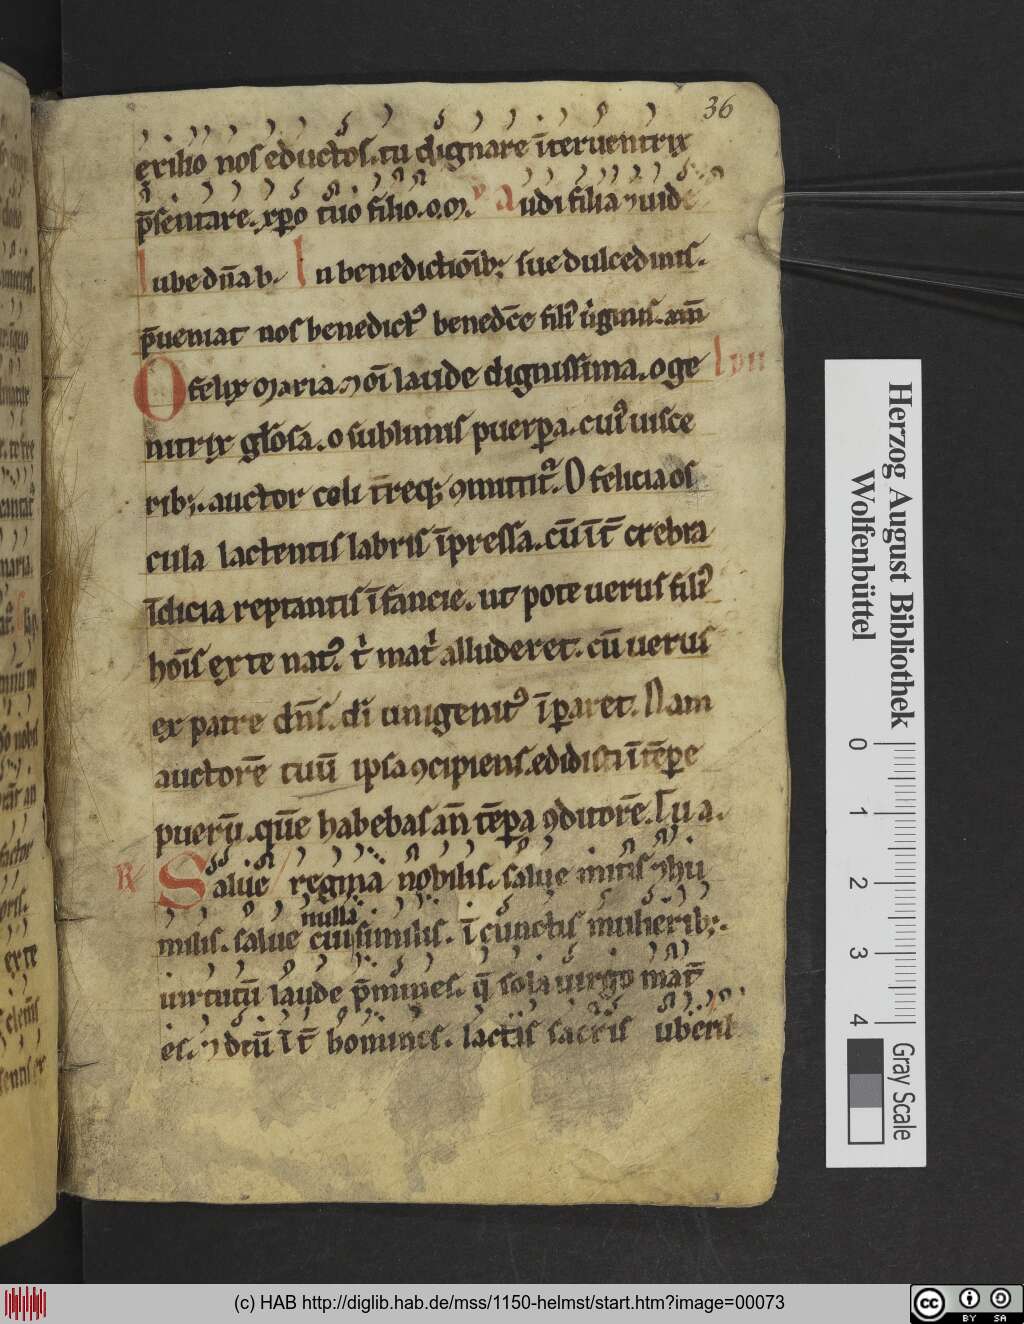 36
exilio nos eductos. tu dignare īteruentrix
p̄sentare. xp̄o tuo filio. o. m. V̾ Audi filia ⁊ uide
Iube dn̄a b. In benedictiōib; sue dulcedinis.
p̄ueniat nos benedictꝰ benedc̄e filiꝰ uͥginis. am̄
O felix maria ⁊ oī laude dignissima. o ge
nitrix gl̄osa. o sublimis puerꝑa. cuiꝰ uisce
rib;. auctor celi t̄req; ꝯmittit᷑. O felicia os
cula lactentis labris īpressa. cū īt̄ crebra
īdicia reptantis īfancie. ut pote uerus filiꝰ
hoīs ex te natꝰ. tͥ matͥ alluderet. cū uerus
ex patre dn̄s. dī unigenitꝰ īꝑaret. Nam
auctorē tuū ipsa ꝯcipiens. edidisti ī tēꝑe
puerū. quē habebas an̄ tēꝑa ꝯditorē. Tu a.
R̸ Salue regina nobilis. salue mitis ⁊ hu
milis. salue cui nulla similis. ī cunctis mulierib;.
uirtutū laude p̄mines. q̄ sola uirgo mat̄
es. ⁊ dm̄ ⁊ homines. lactis sacris uberi
Herzog August Bibliothek
Wolfenbüttel
0 1 2 3 4
Gray Scale
(c) HAB http://diglib.hab.de/mss/1150-helmst/start.htm?image=00073
cc BY SA